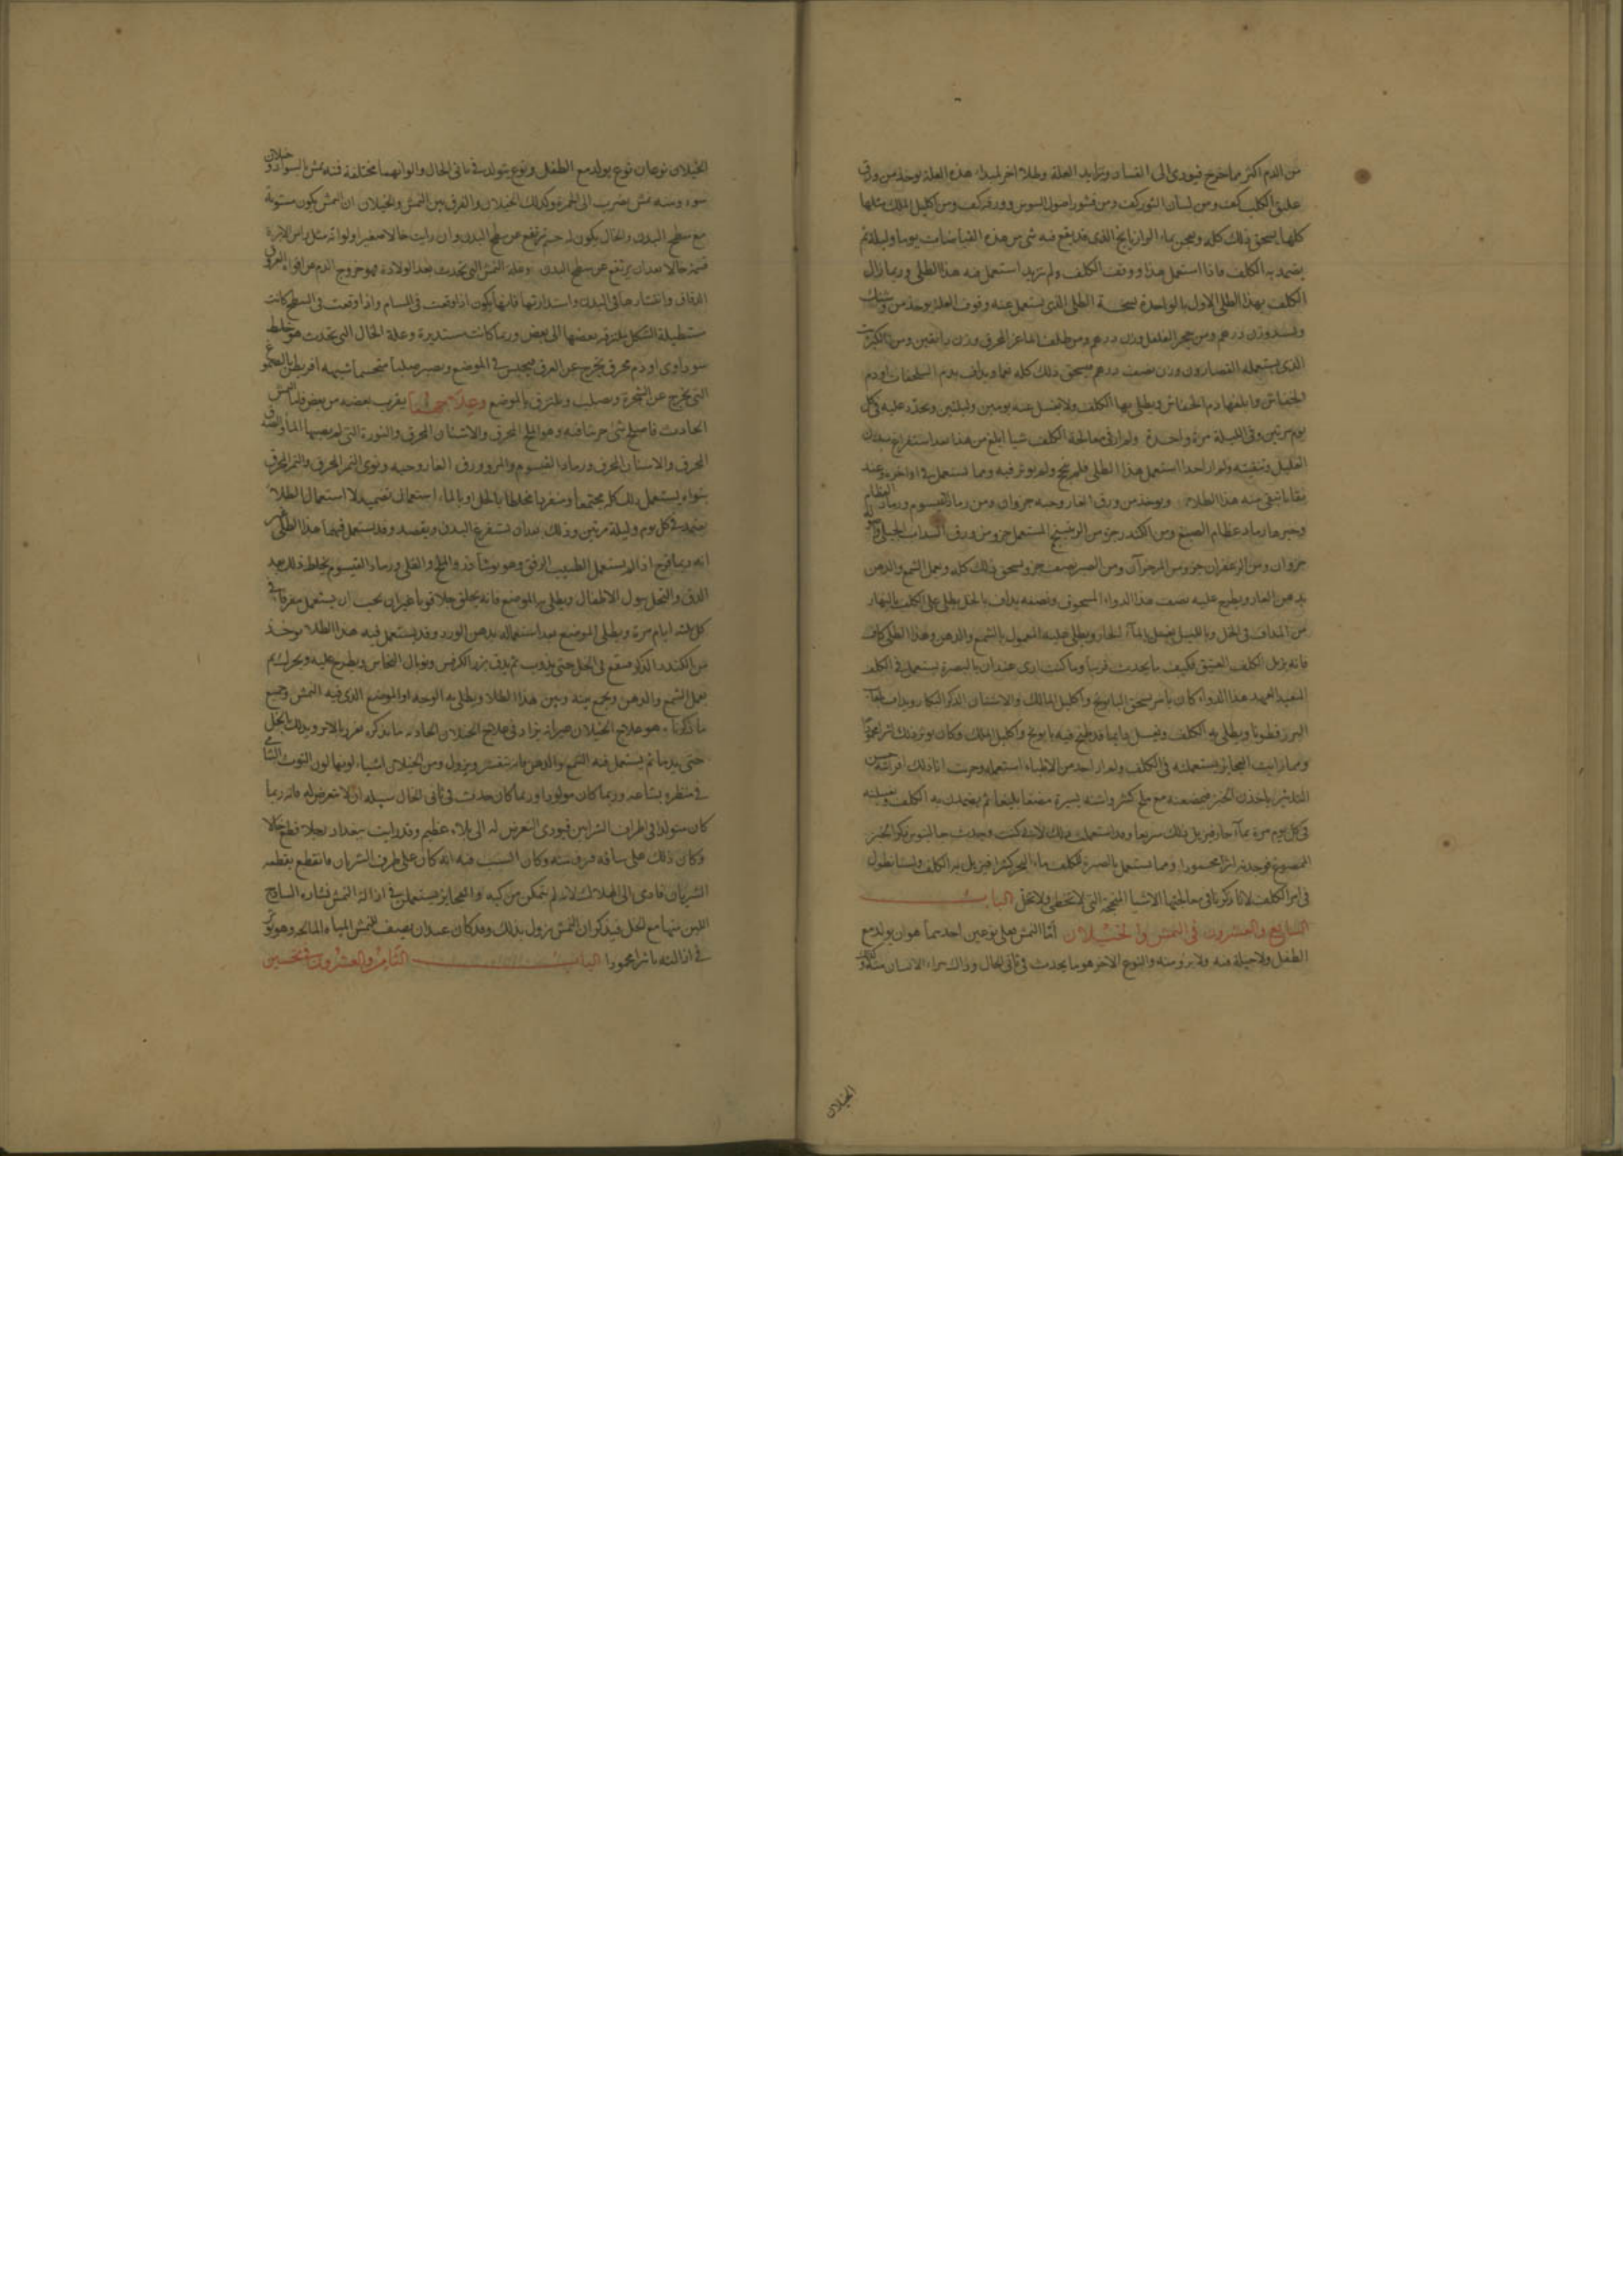 من الدم اكثر مما خرج فيودى الى الفساد وتزايد العلة وطلاء اخر لمبداء هذه العلة يوخذ من ورق
عليق الكلب كف ومن لسان الثور كف ومن قشور اصول السوس وورقه كف ومن اكليل الملك مثلها
كلها يسحق ذلك كله ويعجن بماء الرازيانج الذى قد يقع فيه شى من هذه يوما وليلة ثم
يضمد به الكلف فاذا استعمل هذا ووقف الكلف ولم يتزيد استعمل فيه هذا الطلى وربما زال
الكلف بهذا الطلى الاول بالواحدة نسخة الطلى الذى يستعمل عند وقوف العلة يوخذ من
وزن درهم ومن الفلفل وزن درهم ومن ظلف الماعز المحرق وزن دانقين ومن الكبريت
الذى يستعمله القصارون وزن نصف درهم يسحق ذلك كله نعما ويداف بدم السلحفاة او دم
الخفاش وابلغها دم الخفاش ويطلى بها الكلف ولا يغسل عنه يومين وليلتين ويجدد عليه فى كل
يوم مرتين وفى الليلة مرة واحدة ولم ار فى معالجة الكلف شيا ابلغ من هذا بعد استفراغ بدن
العليل وتنقيته ولم ار احدا استعمل هذا الطلى فلم ينجح ولم يوثر فيه ومما يستعمل فى اواخره وعند
بقايا تبقى منه هذا الطلاء ويوخذ من ورق الغار وحبه جزوان ومن رماد القيسوم ورماد العظام
وخيرها رماد عظام الضبع ومن الكندر جزء من المستعمل جزو من ورق السداب الجبلى
جزوان ومن الزعفران جزو من آن ومن الصبر نصف جزو يسحق ذلك كله ويعمل الشمع والدهن
بدهن الغار ويطرح عليه نصف هذا الدواء المسحوق ونصفه يداف بالخل يطلى على الكلف بالنهار
من المداف فى الخل وبالليل يغسل بالماء الحار ويطلى عليه المعمول بالشمع والدهن وهذا الطلى كاف
فانه يزيل الكلف العتيق فكيف ما يحدث قريبا وما كنت ارى عبدان بالبصرة يستعمل فى الكلف
البعيد العهد هذا الدواء كان يامر بسحق البابونج واكليل الملك والاشنان الذكر ويداف بلعاب
البزر قطونا ويطلى به الكلف ويغسل بماء قد طبخ فيه بابونج واكليل الملك وكان يوثر فيه اثرا محمودا
ومما رايت العجايز يستعملنه فى الكلف ولم ار احد من الاطباء استعمله وجربت انا ذلك
ياخذن الخبز فيمضغنه مع ملح كثير واشنه يسيرة مضغا بليغا ثم يضمدن به الكلف ويغسلنه
فى كل يوم مرة بماء حار فيزيل ذلك سريعا وقد استعملت ذلك لانى كنت وجدت جالينوس ذكر الخبز
الممضوغ فوجدته اثرا محمودا ومما تستعمل بالبصرة للكلف ماء البحر كثيرا فيزيل اثر الكلف ولسنا نطول
فى امر الكلف لانا ذكرنا فى معالجتها الاشيا المنجحة التى لا تخطى ولا تخل الباب
السابع والعشرون فى النمش والخيلان اما النمش فعلى نوعين احدهما هو ان يولد مع
الطفل ولا حيلة فيه ولا برو منه والنوع الاخر هو ما يحدث فى ثانى الحال وذاك يبراء الانسان منه وكذلك
الخيلان
الخيلان نوعان نوع يولد مع الطفل ونوع يتولد فى ثانى الحال والوانهما مختلفة فمنه نمش بالسواد وخيلان
سود ومنه نمش يضرب الى الحمرة وكذلك الخيلان والفرق بين النمش والخيلان ان النمش يكون مستوية
مع سطح البدن والخال يكون له جسم يرتفع عن سطح البدن وان رايت خالا صغيرا ولو انه مثل راس الابرة
فسمه خالا بعد ان يرتفع عن سطح البدن وعلة النمش التى تحدث بعد الولادة هو خروج الدم من افواه العروق
الدقاق وانتشارها فى البدن واستدارتها فانها يكون اذا وقعت فى المسام واذا وقعت فى السطح كانت
مستطيلة الشكل يلتزق بعضها الى بعض وربما كانت مستديرة وعلة الخال التى تحدث هو خلط
سوداوى او دم محرق يخرج عن العرق فيحتبس فى الموضع ويصير صلبا متجسما شبيها بالصموغ
التى تخرج عن الشجرة وتصلب ويلتزق بالموضع وعلاجهما يقرب بعضه من بعض فاما النمش
الحادث فاصلح شى جربناه فيه وهو الملح المحرق والاشنان المحرق والنورة التى لم يصبها الماء
المحرق والاسنان المحرق ورماد القيسوم والمر وورق الغار وحبه ونوى التمر المحرق والتمر المحرق
بنواه يستعمل ذلك كله مجتمعا ومنفردا مخلطا بالخل او بالماء استعمال تضميد لا استعمال الطلاء
يضمد فى كل يوم وليلة مرتين وذلك بعد ان يستفرغ البدن ويفصد وقد يستعمل فيها هذا الطلى غير
انه ربما قرح اذا لم يستعمل الطبيب الرفق وهو والملح والقلى ورماد القيسوم يخلط ذلك بعد
الدق والنخل ببول الاطفال ويطلى به الموضع فانه يجلو جلاء قويا غير ان يجب ان يستعمل مفرقا فى
كل ثلثة ايام مرة ويطلى الموضع بعد استعماله بدهن الورد وقد يستعمل فيه هذا الطلاء يوخذ
من الكندر الذكر فينقع فى الخل حتى يذوب ثم يدق بزر الكرفس وتوبال النحاس ويطرح عليه ويحرك ثم
يعمل الشمع والدهن ويجمع بينه وبين هذا الطلاء ويطلى به الوجه او الموضع الذى فيه النمش وجميع
ما ذكرناه هو علاج الخيلان غير انه يزاد فى علاج الخيلان الحادثه ما نذكره بالابر ويدلك بالخل
حتى يدما ثم يستعمل فيه الشمع والدهن فانه يتقشر ويزول ومن الخيلان اشياء لونها لون التوت الشامى
فى منظره بشاعه وربما كان مولودا وربما كان حدث فى ثانى الحال سبيله ان لا تتعرض له فانه ربما
كان متولدا فى اطراف الشرايين فيودى التعرض له الى بلاء عظيم وقد رايت ببغداد رجلا قطع خالا
وكان ذلك على ساقه فنزف منه وكان السبب فيه انه كان على طرف الشريان فانقطع بقطعه
الشريان فادى الى الهلاك لانه لم يتمكن من كيه والعجايز يستعملن فى ازالة النمش نشاره الساج
اللين منها مع الخل فيذكر ان النمش يزول بذلك وقد كان عبدان يصف للنمش المياه المالحه وهو يوثر
فى ازالته تاثيرا محمودا الباب الثامن والعشرون فى تحسين